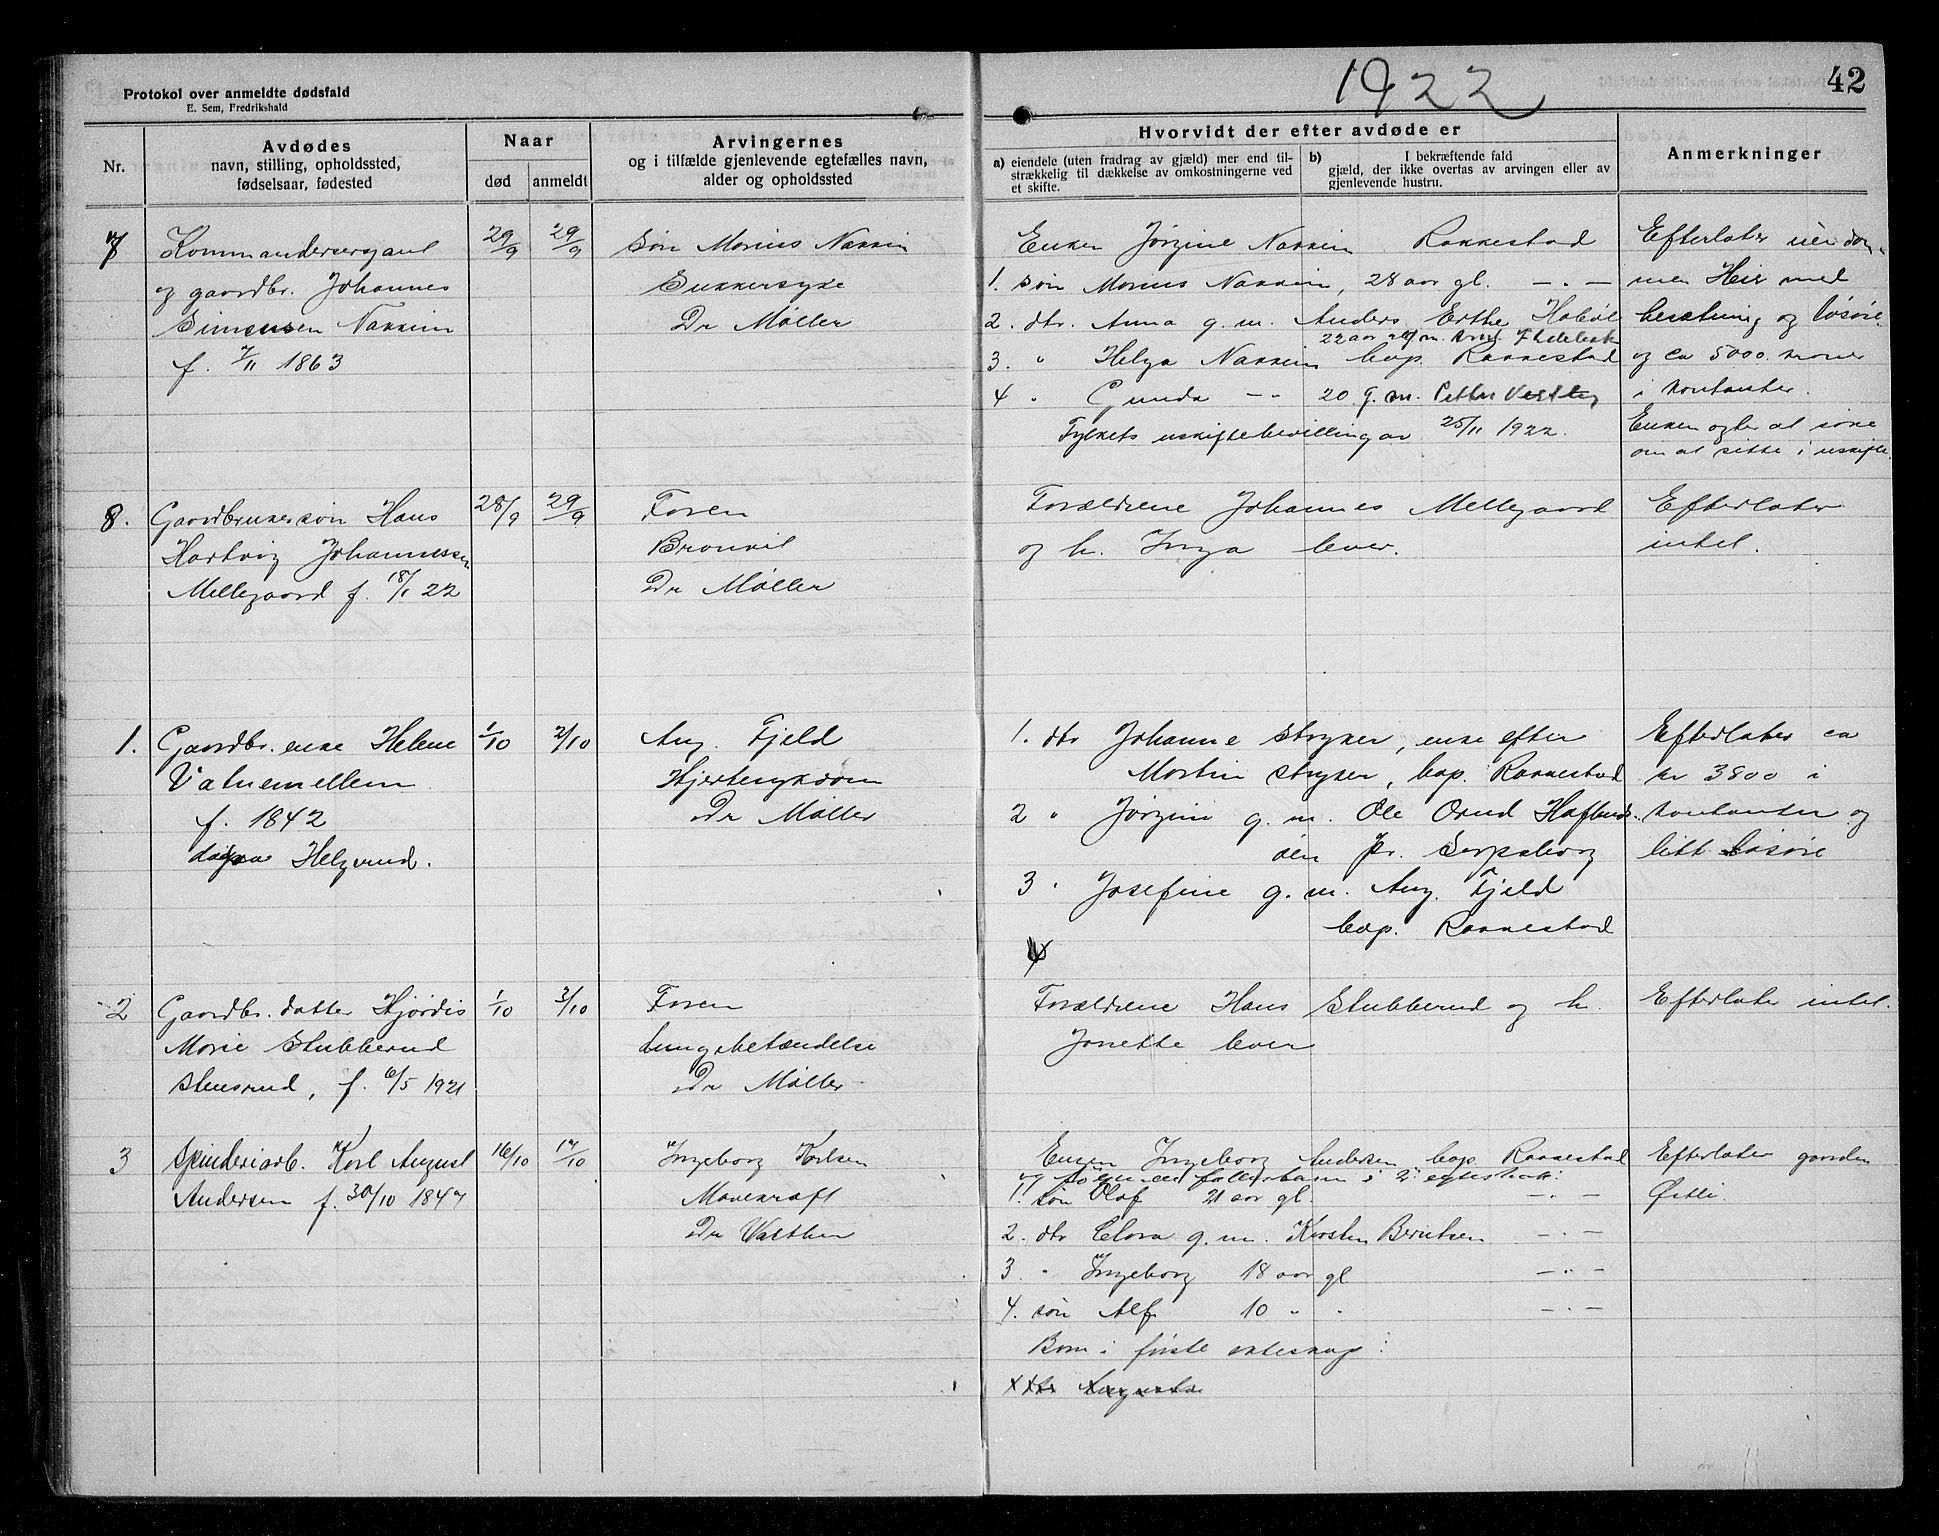 Protokol over anmeldte dødsfald
E. Sem, Fredrikshald
1922
42
Nr.
Avdødes
navn, stilling, opholdssted,
fødselsaar, fødested
Naar
død
anmeldt
Arvingernes
og i tilfælde gjenlevende egtefælles navn,
alder og opholdssted
Hvorvidt der efter avdøde er
a) eiendele (uten fradrag av gjæld) mer end til-
strækkelig til dækkelse av omkostningerne ved
et skifte.
b) I bekræftende fald
gjæld, der ikke overtas av arvingen eller av
gjenlevende hustru.
Anmerkninger
7
Kommandersersjant
og gaardbr. Johannes
Simensen Nakkim
f. 7/11 1863
29/9
29/9
Søn Marius Nakkim
Sukkersyke
Dr Møller
Enken Jørgine Nakkim Rakkestad
1. søn Marius Nakkim, 28 aar gl. — " —
2. dtr. Anna g. m. Anders Erthe Hobøl
22 aar
3. " Helga Nakkim bop. Rakkestad
4 " Gunda — " 20 g. m. Petter
Fylkets uskiftebevilling av 25/11 1922.
Efterlater
men Heir med
besætning og løsøre
og ca 5000 kroner
i kontanter.
Enken agter at søke
om at sitte i uskifte.
8.
Gaardbrukersøn Hans
Hartvig Johannessen
Mellegaard f. 18/1 22
28/9
29/9
Faren
Bronkit
Dr Møller
Forældrene Johannes Mellegaard
og h. Inga lever.
Efterlater
intet.
1.
Gaardbr. enke Helene
Vatnemellem
f. 1842
Helgerud.
1/10
2/10
Aug. Fjeld
Hjertesykdom
Dr Møller
1. dtr Johanne Stryker, enke efter
Martin Stryker, bop. Rakkestad
2 " Jørgine g. m. Ole Orud Haflunds-
øen pr. Sarpsborg
3 " Josefine g. m. Aug. Fjeld
bop. Rakkestad
4
Efterlater ca
kr 3800 i
kontanter og
litt løsøre
2
Gaardbr. datter Hjørdis
Marie Stubberud
Stensrud, f. 6/5 1921
1/10
3/10
Faren
Lungebetændelse
Dr Møller
Forældrene Hans Stubberud og h.
Jonette lever
Efterlater intet.
3
Spinderiarb. Karl August
Andersen f. 30/10 1847
16/10
17/10
Ingeborg Karlsen
Mavekræft
Dr Walther
Enken Ingeborg Andersen bop. Rakkestad
og følgende fællesbarn i 2 egteskab:
1. søn Olaf 21 aar gl. — " —
2. dtr Clara g. m. Karsten Berntsen — " —
3 " Ingeborg 18 aar gl — " —
4. søn Alf 10 " " — " —
Barn i første ekteskap:
dtr Augusta
Efterlater gaarden
Østli.